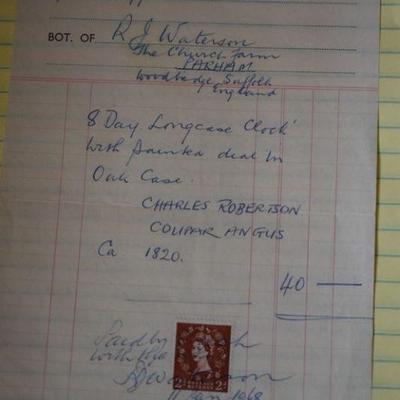 BOT. OF R J Waterson
The Church Farm
PARHAM
Woodbridge Suffolk
England
8 Day Longcase Clock
With painted dial in
Oak Case.
CHARLES ROBERTSON
COUPAR ANGUS
Ca 1820.
40 —
Paid by
With
2D 2D
11 Jan 1968